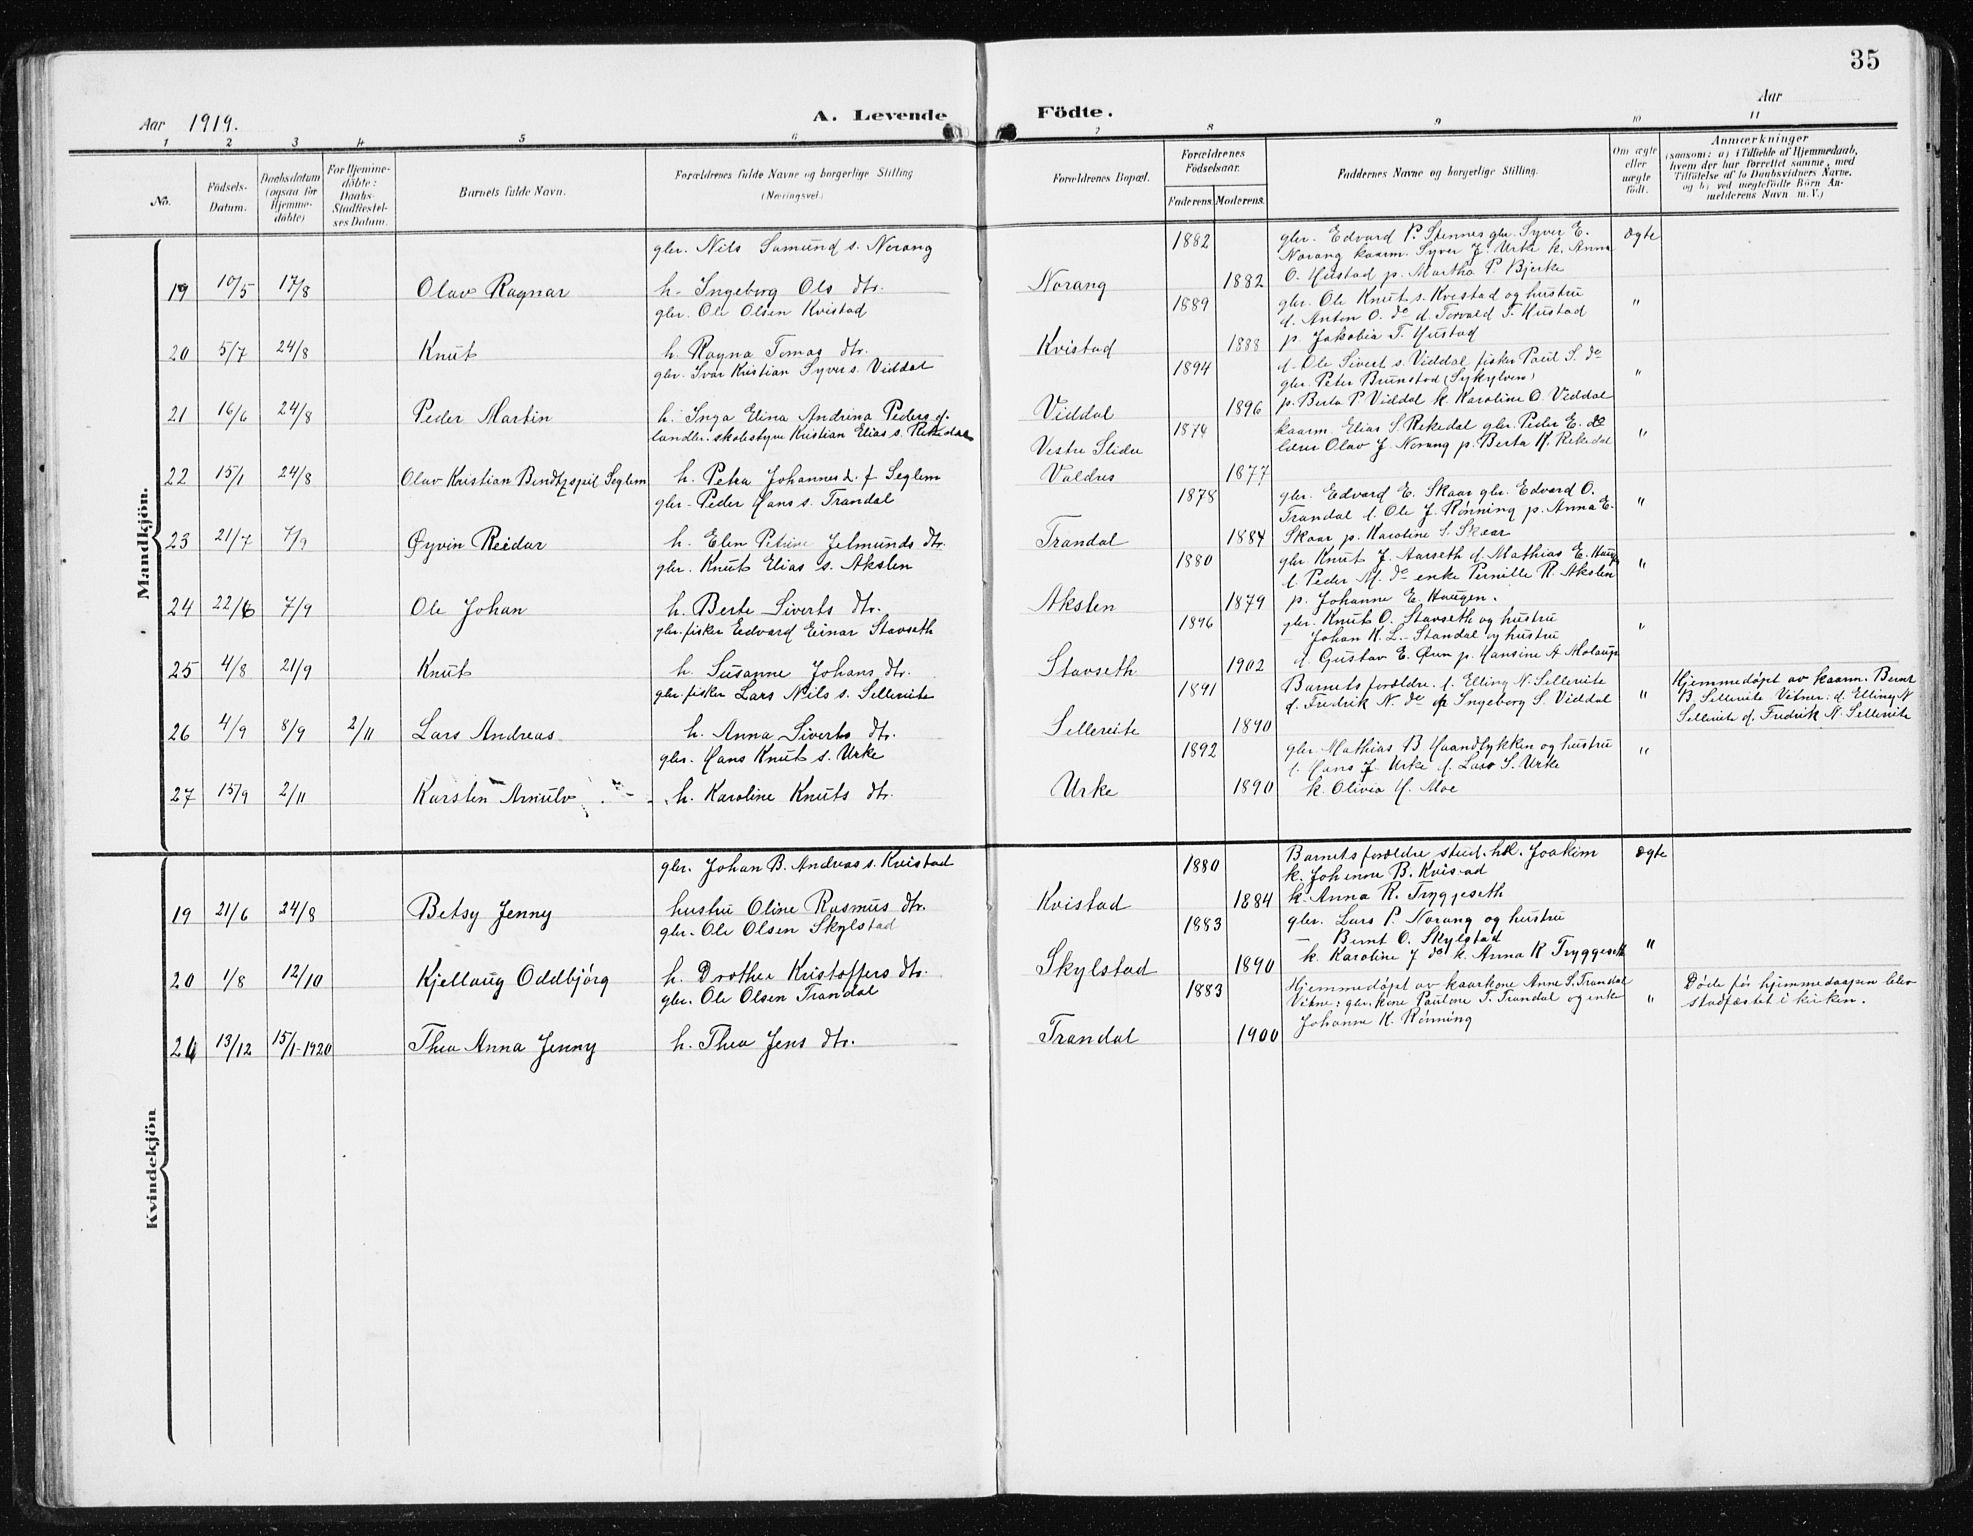 35
Aar 1919.
A. Levende Födte.
Aar
1 2 3 4 5 6 7 8 9 10 11
No.
Födsels-Datum.
Daabsdatum (ogsaa for Hjemme-döbte)
For Hjemme-döbte: Daabs-Stadfæstel-ses Datum.
Barnets fulde Navn.
Forældrenes fulde Navne og borgerlige Stilling (Næringsvei.)
Forældrenes Bopæl.
Forældrenes Födselsaar. Faderens. Moderens.
Faddernes Navne og borgerlige Stilling.
Om ægte eller uægte födt.
Anmærkninger
(saasom: a) i Tilfælde af Hjemmedaab, hvem der har forrettet samme, med Tilföielse af to Daabsvidners Navne. og b) ved uægtefödte Börn An-melderens Navn m. V.)
Mandkjön.
gbr. Nils Samund s. Norang 1882 gbr. Edvard P. Stennes gbr. Syver E. Ægte
Norang kaarm. Syver J. Urke k. Anna
19 10/5 17/8 Olav Ragnar h. Ingeborg Ols dtr. Norang 1882 O. Hustad p. Martha P. Bjerke
gbr. Ole Olsen Kvistad 1889 gbr. Ole Knut s. Kvistad og hustru "
d. Anton O. do d. Torvald T. Hustad
20 5/7 24/8 Knut h. Ragna Tomas dtr. Kvistad 1888 p. Jakobia T. Hustad
gbr. Ivar Kristian Syver s. Viddal 1894 f. Ole Sivert s. Viddal fisker Paul S. do "
gbr. Peter Brunstad (Sykylven)
21 16/6 24/8 Peder Martin h. Inga Elina Andrina Peders d. Viddal 1896 p. Berta P. Viddal k. Karoline O. Viddal
landbr. skolestyrer Kristian Elias s. Rekedal Vestre Slidre 1874 kaarm. Elias S. Rekedal gbr. Peder E. do "
lærer Olav J. Norang p. Berta K. Rekedal
22 15/1 24/8 Olav Kristian Seglem h. Petra Johannes d. f. Seglem Valdres 1877
gbr. Peder Hans s. Trandal 1878 gbr. Edvard E. Skaar gbr. Edvard O. "
Trandal f. Ole J. Rønning p. Anna E.
23 21/7 7/9 Øyvin Reidar h. Elen Petrine Jelmunds dtr. Trandal 1884 Skaar p. Karoline S. Skaar
gbr. Knut Elias s. Akslen 1880 gbr Knut J. Aarseth d. Mathias E. Haugen "
f. Peder M. do enke Pernille R. Akslen
24 22/6 7/9 Ole Johan h. Berte Siverts dtr. Akslen 1879 p. Johanne E. Haugen.
gbr. fisker Edvard Einar Stavseth 1896 gbr. Knut O. Stavseth og hustru "
– Johan K. L. Standal og hustru
25 4/8 21/9 Knut h. Susanne Johans dtr. Stavseth 1902 f. Gustav E. Øun p. Hansine A. Molaup
gbr. fisker Lars Nils s. Sellereite 1891 Barnets forældre. f. Elling N. Sellereite " Hjemmedøpt av kaarm. Bernt
d. Fredrik N. do p Ingeborg S. Viddal B. Sellereite Vitner: d. Elling N
26 4/9 8/9 2/11 Lars Andreas h. Anna Siverts dtr. Sellereite 1890 Sellereite d. Fredrik N. Sellereite
gbr. Hans Knut s. Urke 1892 gbr Mathias B Haandlykken og hustru "
f. Hans J. Urke f. Lars S. Urke
27 15/9 2/11 Karsten Arnulv h. Karoline Knuts dtr. Urke 1890 k. Olivia H. Moe
Kvindekjön
gbr. Johan B. Andreas s. Kvistad 1880 Barnets forældre stud. hk. Joakim Ægte
k. Johanne B. Kvistad
19 21/6 24/8 Betsy Jenny hustru Oline Rasmus dtr. Kvistad 1884 k. Anna R. Tryggeseth
gbr. Ole Olsen Skylstad 1883 gbr. Lars P. Norang og hustru "
– Bernt O. Skylstad
20 1/8 12/10 Kjellaug Oddbjørg h. Drothea Kristoffers dtr. Skylstad 1890 k. Karoline J do k. Anna R Tryggeseth
gbr. Ole Olsen Trandal 1883 Hjemmedøpt av kaarkone Anne S. Trandal " Døde før hjemmedaapen blev
Vitne: gbr. kone Pauline T. Trandal og enke stadfæstet i kirken.
21 13/12 15/1-1920 Thea Anna Jenny h. Thea Jens dtr. Trandal 1900 Johanne K. Rønning